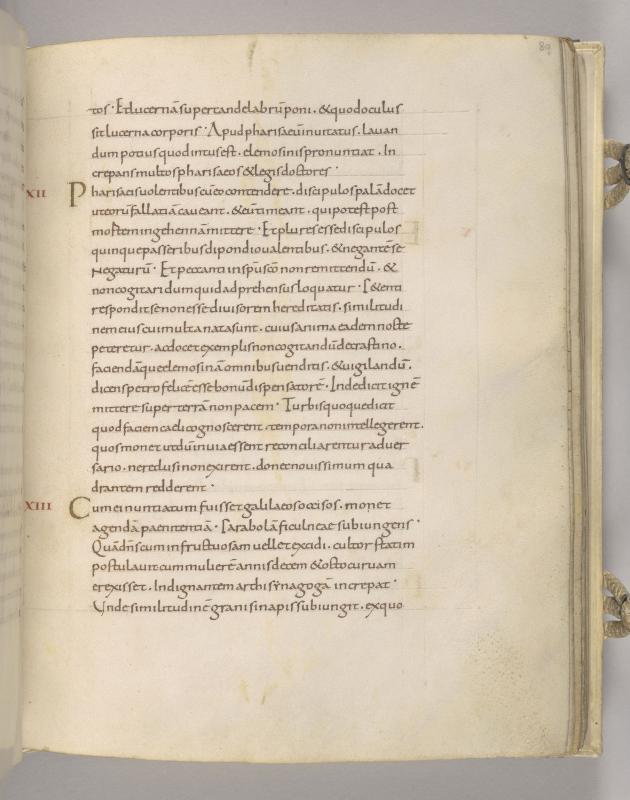 89
tos · Et lucernā super candelabrū poni · & quod oculus
sit lucerna corporis · Apud pharisaeū inuitatus · lauan
dum potius quod intus est · elemosinis pronuntiat · In
crepans multos pharisaeos & legis doctores ·
XII Pharisaeis uolentibus cū eo contendere · discipulos palā docet
ut eorū fallatiā caueant · & eū timeant · qui potest post
mortem in gehennā mittere · Et plures esse discipulos
quinque passeribus dipondio ualentibus · & negantē se
negaturū · Et peccanti in sp̄m sc̄m non remittendū · &
non cogitari dum quid adprehensus loquatur · Petenti
respondit se non esse diuisorem hereditatis · similitudi
nem eius cui multa nata sunt · cuius anima eadem nocte
peteretur · ac docet exemplis non cogitandū de crastino ·
faciendāque elemosinā omnibus uenditis · & uigilandū ·
dicens petro felicē esse bonū dispensatorē · Inde dicit ignē
mittere super terrā non pacem · Turbis quoque dicit
quod faciem caeli cognoscerent · tempora non intellegerent ·
quos monet ut dū in uia essent reconciliarentur aduer
sario · ne reclusi non exirent · donec nouissimum qua
drantem redderent ·
XIII Cum ei nuntiatum fuisset galilaeos occisos · monet
agendā paenitentiā · Parabolā ficulneae subiungens ·
Quā dn̄s cum infructuosam uellet excidi · cultor statim
postulauit cum mulierē annis decem & octo curuam
erexisset · Indignantem archisynagogā increpat ·
Unde similitudinē grani sinapis subiungit · ex quo